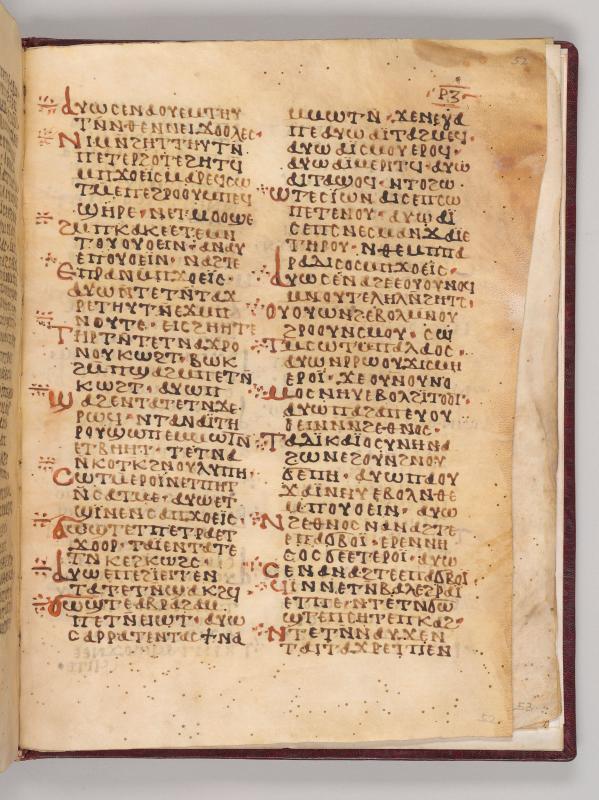 ⲣⲍ
ⲁⲩⲱⲥⲉⲛⲁⲟⲩⲉⲙⲧⲏⲩ
ⲧⲛ̄ⲛⲑⲉⲛⲛⲉⲓϫⲟⲟⲗⲉⲥ·
ⲛⲓⲙⲛϩⲏⲧⲧⲏⲩⲧⲛ̄
ⲡⲉⲧⲉⲣϩⲟⲧⲉϩⲏⲧϥ
ⲙⲡϫⲟⲉⲓⲥⲙⲁⲣⲉϥⲥⲱ
ⲧⲙⲉⲡⲉϩⲣⲟⲟⲩⲙⲡⲉϥ
ϣⲏⲣⲉ·ⲛⲉⲧⲙⲟⲟϣⲉ
ϩⲙⲡⲕⲁⲕⲉⲉⲧⲉⲙⲛ
ⲧⲟⲩⲟⲩⲟⲉⲓⲛ·ⲁⲛⲁⲩ
ⲉⲡⲟⲩⲟⲉⲓⲛ·ⲛⲁϩⲧⲉ
ⲉⲡⲣⲁⲛⲙⲡϫⲟⲉⲓⲥ·
ⲁⲩⲱⲛ̄ⲧⲉⲧⲛ̄ⲧⲁϫ
ⲣⲉⲧⲏⲩⲧⲛ̄ⲉϫⲙⲡ
ⲛⲟⲩⲧⲉ·ⲉⲓⲥϩⲏⲏⲧⲉ
ⲧⲏⲣⲧⲛ̄ⲧⲉⲧⲛⲁϫⲣⲟ
ⲛⲟⲩⲕⲱϩⲧ·ⲃⲱⲕ
ϩⲙⲡϣⲁϩⲙⲡⲉⲧⲛ̄
ⲕⲱϩⲧ·ⲁⲩⲱⲡ
ϣⲁϩⲉⲛⲧⲁⲧⲉⲧⲛϫⲉ
ⲣⲱϥ·ⲛⲧⲁⲛⲁⲓ̈ⲧⲏ
ⲣⲟⲩϣⲱⲡⲉⲙⲙⲱⲧⲛ̄
ⲉⲧⲃⲏⲏⲧ·ⲧⲉⲧⲛⲁ
ⲛ̄ⲕⲟⲧⲕϩⲛⲟⲩⲗⲩⲡⲏ·
ⲥⲱⲧⲙⲉⲣⲟⲓ̈ⲛⲉⲧⲡⲏⲧ
ⲛ̄ⲥⲁⲧⲙⲉ·ⲁⲩⲱⲉⲧ
ϣⲓⲛⲉⲛⲥⲁⲡϫⲟⲉⲓⲥ·
ϭⲱϣⲧⲉⲧⲡⲉⲧⲣⲁⲉⲧ
ϫⲟⲟⲣ·ⲧⲁⲓ̈ⲉⲛⲧⲁⲧⲉ
ⲧⲛⲕⲉϩⲕⲱϩⲥ·
ⲁⲩⲱⲉⲡⲉϩⲓⲉⲓⲧⲉⲛ
ⲧⲁⲧⲉⲧⲛϣⲁⲕϩϥ
ϭⲱϣⲧⲉⲁⲃⲣⲁϩⲁⲙ·
ⲡⲉⲧⲛⲉⲓⲱⲧ·ⲁⲩⲱ
ⲥⲁⲣⲣⲁⲧⲉⲛⲧⲁⲥϯⲛⲁ
ⲙⲙⲱⲧⲛ̄·ϫⲉⲛⲉⲩⲁ
ⲡⲉⲁⲩⲱⲁⲓ̈ⲧⲁϩⲙⲉϥ·
ⲁⲩⲱⲁⲓ̈ⲥⲙⲟⲩⲉⲣⲟϥ·
ⲁⲩⲱⲁⲓ̈ⲙⲉⲣⲓⲧϥ·ⲁⲩⲱ
ⲁⲓⲧⲁϣⲟϥ·ⲛⲧⲟϩⲱ
ⲱⲧⲉⲥⲓ̈ⲱⲛⲁⲓⲥⲉⲡⲥⲱ
ⲡⲉⲧⲉⲛⲟⲩ·ⲁⲩⲱⲁⲓ̈
ⲥⲉⲡⲥⲛⲉⲥⲙⲁⲛϫⲁⲓ̈ⲉ
ⲧⲏⲣⲟⲩ·ⲛⲑⲉⲙⲡⲡⲁ
ⲣⲁⲇⲓⲥⲟⲥⲙⲡϫⲟⲉⲓ̈ⲥ·
ⲁⲩⲱⲥⲉⲛⲁϩⲉⲉⲟⲩⲟⲩⲛⲟϥ
ⲙⲛⲟⲩⲧⲉⲗⲏⲗⲛϩⲏⲧⲥ·
ⲟⲩⲟⲩⲱⲛϩⲉⲃⲟⲗⲙⲛⲟⲩ
ϩⲣⲟⲟⲩⲛⲥⲙⲟⲩ·ⲥⲱ̄
ⲧⲙⲥⲱⲧⲙⲡⲁⲗⲁⲟⲥ·
ⲁⲩⲱⲛⲣⲣⲱⲟⲩϫⲓⲥⲙⲏ
ⲉⲣⲟⲓ̈·ϫⲉⲟⲩⲛⲟⲩⲛⲟ
ⲙⲟⲥⲛⲏⲩⲉⲃⲟⲗϩⲓⲧⲟⲟⲧ·
ⲁⲩⲱⲡⲁϩⲁⲡⲉⲩⲟⲩ
ⲟⲉⲓⲛⲛⲛϩⲉⲑⲛⲟⲥ·
ⲧⲁⲇⲓⲕⲁⲓⲟⲥⲩⲛⲏⲛⲁ
ϩⲱⲛⲉϩⲟⲩⲛϩⲛⲟⲩ
ϭⲉⲡⲏ·ⲁⲩⲱⲡⲁⲟⲩ
ϫⲁⲓ̈ⲛⲏⲩⲉⲃⲟⲗⲛⲑⲉ
ⲙⲡⲟⲩⲟⲉⲓⲛ·ⲁⲩⲱ
ⲛϩⲉⲑⲛⲟⲥⲛⲁⲛⲁϩⲧⲉ
ⲉⲡⲁϭⲃⲟⲓ̈·ⲉⲣⲉⲛⲛⲏ
ⲥⲟⲥϭⲉⲉⲧⲉⲣⲟⲓ̈·ⲁⲩⲱ
ⲥⲉⲛⲁⲛⲁϩⲧⲉⲉⲡⲁϭⲃⲟⲓ̈
ϥⲓⲛⲛⲉⲧⲛⲃⲁⲗⲉϩⲣⲁⲓ̈
ⲉⲧⲡⲉ·ⲛⲧⲉⲧⲛϭⲱ
ϣⲧⲉⲡⲉⲥⲏⲧⲉⲡⲕⲁϩ·
ⲛⲧⲉⲧⲛⲛⲁⲩϫⲉⲛ
ⲧⲁⲓⲧⲁϫⲣⲉⲧⲡⲉⲛ